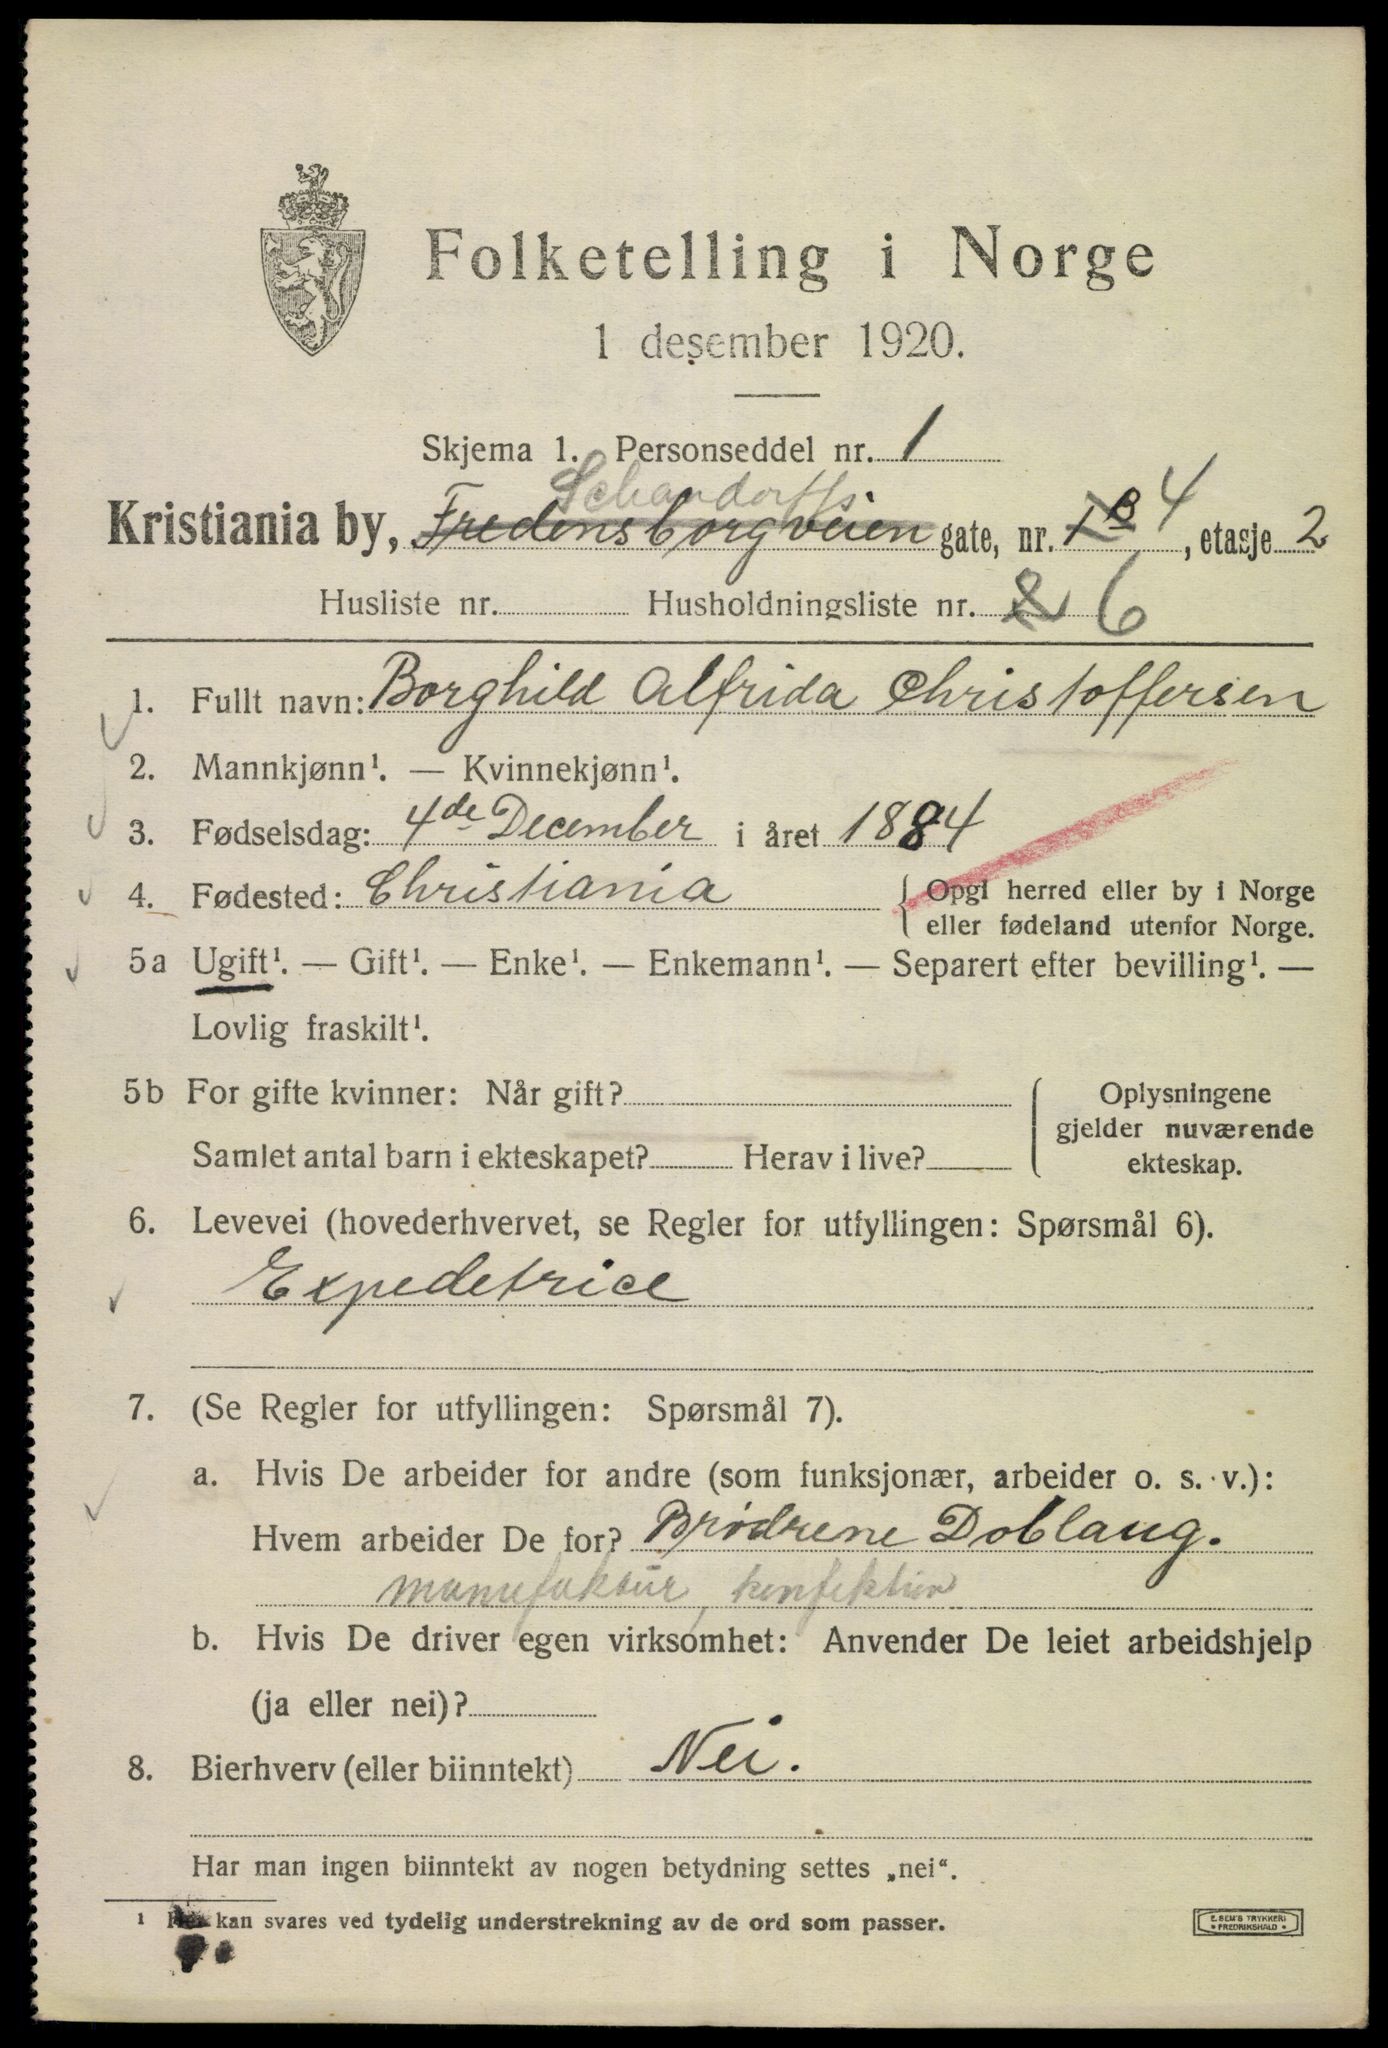 Folketelling i Norge
1 desember 1920.
Skjema 1. Personseddel nr. 1
Schandorffs
Kristiania by, Fredensborgveien gate, nr. 1B 4, etasje 2
Husliste nr. Husholdningsliste nr. 2 6
1. Fullt navn: Borghild Alfrida Christoffersen
2. Mannkjønn¹. — Kvinnekjønn¹.
3. Fødselsdag: 4de December i året 1884
4. Fødested: Christiania { Opgi herred eller by i Norge
eller fødeland utenfor Norge.
5a Ugift¹. — Gift¹. — Enke¹. — Enkemann¹. — Separert efter bevilling¹. —
Lovlig fraskilt¹.
5b For gifte kvinner: Når gift? { Oplysningene
gjelder nuværende
Samlet antal barn i ekteskapet? Herav i live? ekteskap.
6. Levevei (hovederhvervet, se Regler for utfyllingen: Spørsmål 6).
Expedetrice
7. (Se Regler for utfyllingen: Spørsmål 7).
a. Hvis De arbeider for andre (som funksjonær, arbeider o. s. v.):
Hvem arbeider De for? Brødrene Doblaug.
manufaktur, konfektion
b. Hvis De driver egen virksomhet: Anvender De leiet arbeidshjelp
(ja eller nei)?
8. Bierhverv (eller biinntekt) Nei.
Har man ingen biinntekt av nogen betydning settes „nei“.
¹ kan svares ved tydelig understrekning av de ord som passer.
E. SEM'S TRYKKERI
FREDRIKSHALD